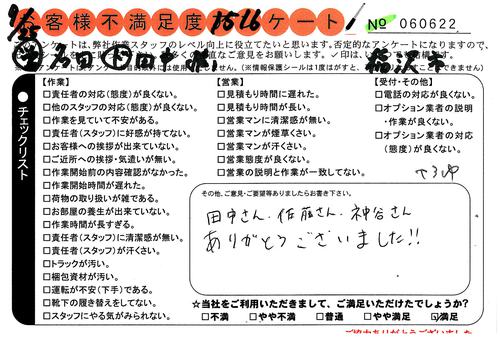 お客様不満足度アンケート
№ 060622
アンケートは、弊社作業スタッフのレベル向上に役立てたいと思います。否定的なアンケートになりますので、
稲沢市
チェックリスト
【作業】
□責任者の対応(態度)が良くない。
□他のスタッフの対応(態度)が良くない。
□作業を見ていて不安がある。
□責任者(スタッフ)に好感が持てない。
□お客様への挨拶が出来ていない。
□ご近所への挨拶・気遣いが無い。
□作業開始前の内容確認がなかった。
□作業開始時間が遅れた。
□荷物の取り扱いが雑である。
□お部屋の養生が出来ていない。
□作業時間が長すぎる。
□責任者(スタッフ)に清潔感が無い。
□責任者(スタッフ)が汗くさい。
□トラックが汚い。
□梱包資材が汚い。
□運転が不安(下手)である。
□靴下の履き替えをしてない。
□スタッフにやる気がみられない。
【営業】
□見積もり時間に遅れた。
□見積もり時間が長い。
□営業マンに清潔感が無い。
□営業マンが煙草くさい。
□営業マンが汗くさい。
□営業態度が良くない。
□営業の説明と作業が一致してない。
【受付・その他】
□電話の対応が良くない。
□オプション業者の説明
・作業が良くない。
□オプション業者の対応
(態度)が良くない。
その他、ご意見・ご要望等ありましたらお書き下さい。
田中さん、佐藤さん、神谷さん
ありがとうございました!!
☆当社をご利用いただきまして、ご満足いただけたでしょうか?
□不満 □やや不満 □普通 □やや満足 ☑満足
ご協力ありがとうございました